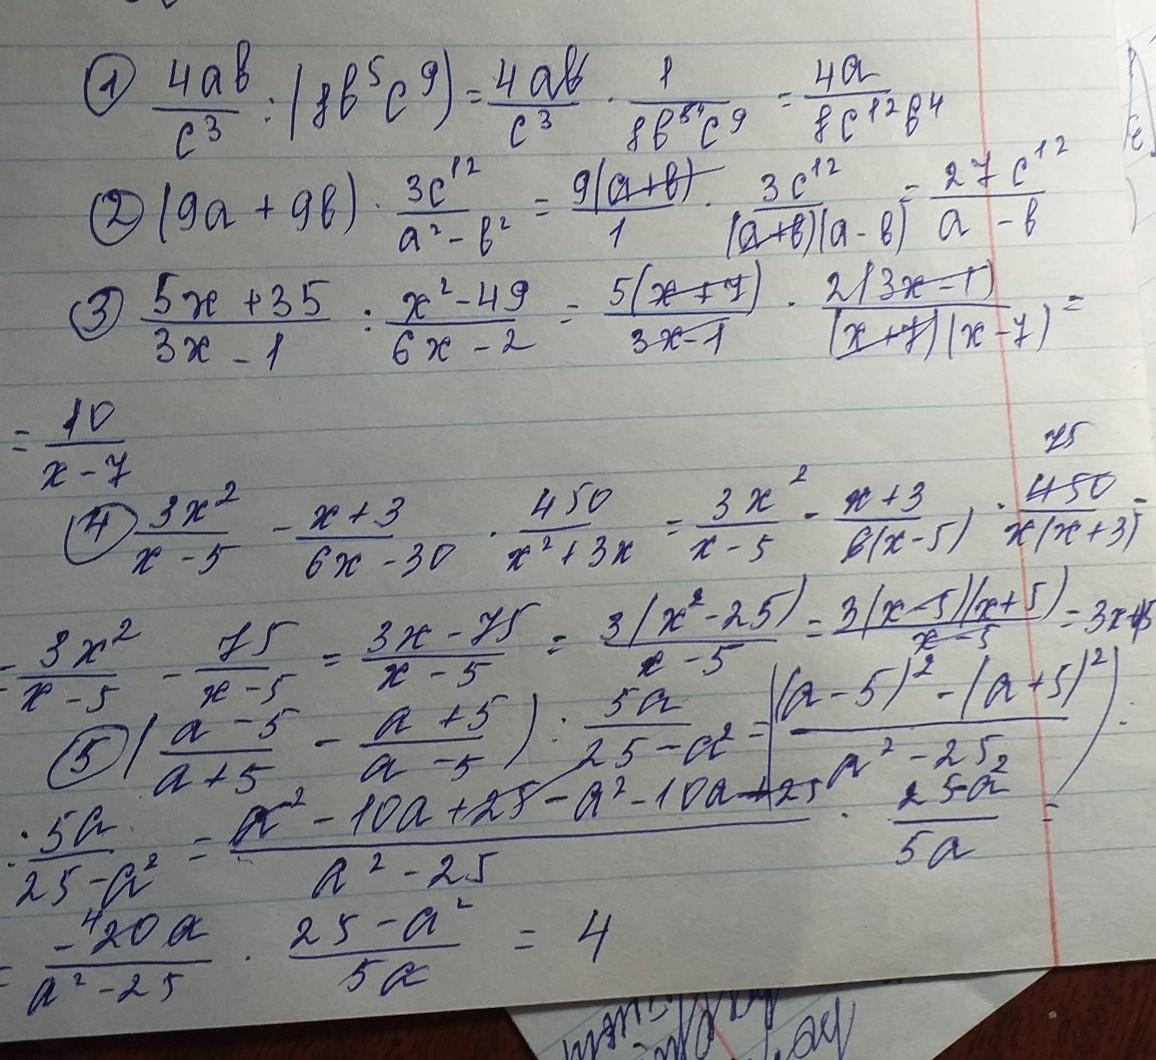 ① 4ab/c³ : (8b⁵c⁹) = 4ab/c³ · 1/8b⁵⁴c⁹ = 4a/8c¹²b⁴
② (9a + 9b) · 3c¹²/a² - b² = 9(a+b)/1 · 3c¹²/(a+b)(a-b) = 27c¹²/a - b
③ 5x + 35/3x - 1 : x² - 49/6x - 2 = 5(x+7)/3x-1 · 2(3x-1)/(x+7)(x-7) =
= 10/x - 7
④ 3x²/x - 5 - x+3/6x - 30 · 450/x² + 3x = 3x²/x - 5 - x+3/6(x-5) · 450 75/x(x+3) =
= 3x²/x - 5 - 75/x - 5 = 3x - 75/x - 5 = 3(x² - 25)/x - 5 = 3(x-5)(x+5)/x-5 = 3x+15
⑤ (a - 5/a + 5 - a + 5/a - 5) : 5a/25 - a² = ((a-5)² - (a+5)²/a² - 25) :
: 5a/25 - a² = a² - 10a + 25 - a² - 10a - 25/a² - 25 · 25-a²/5a =
= -⁴20a/a² - 25 · 25 - a²/5a = 4